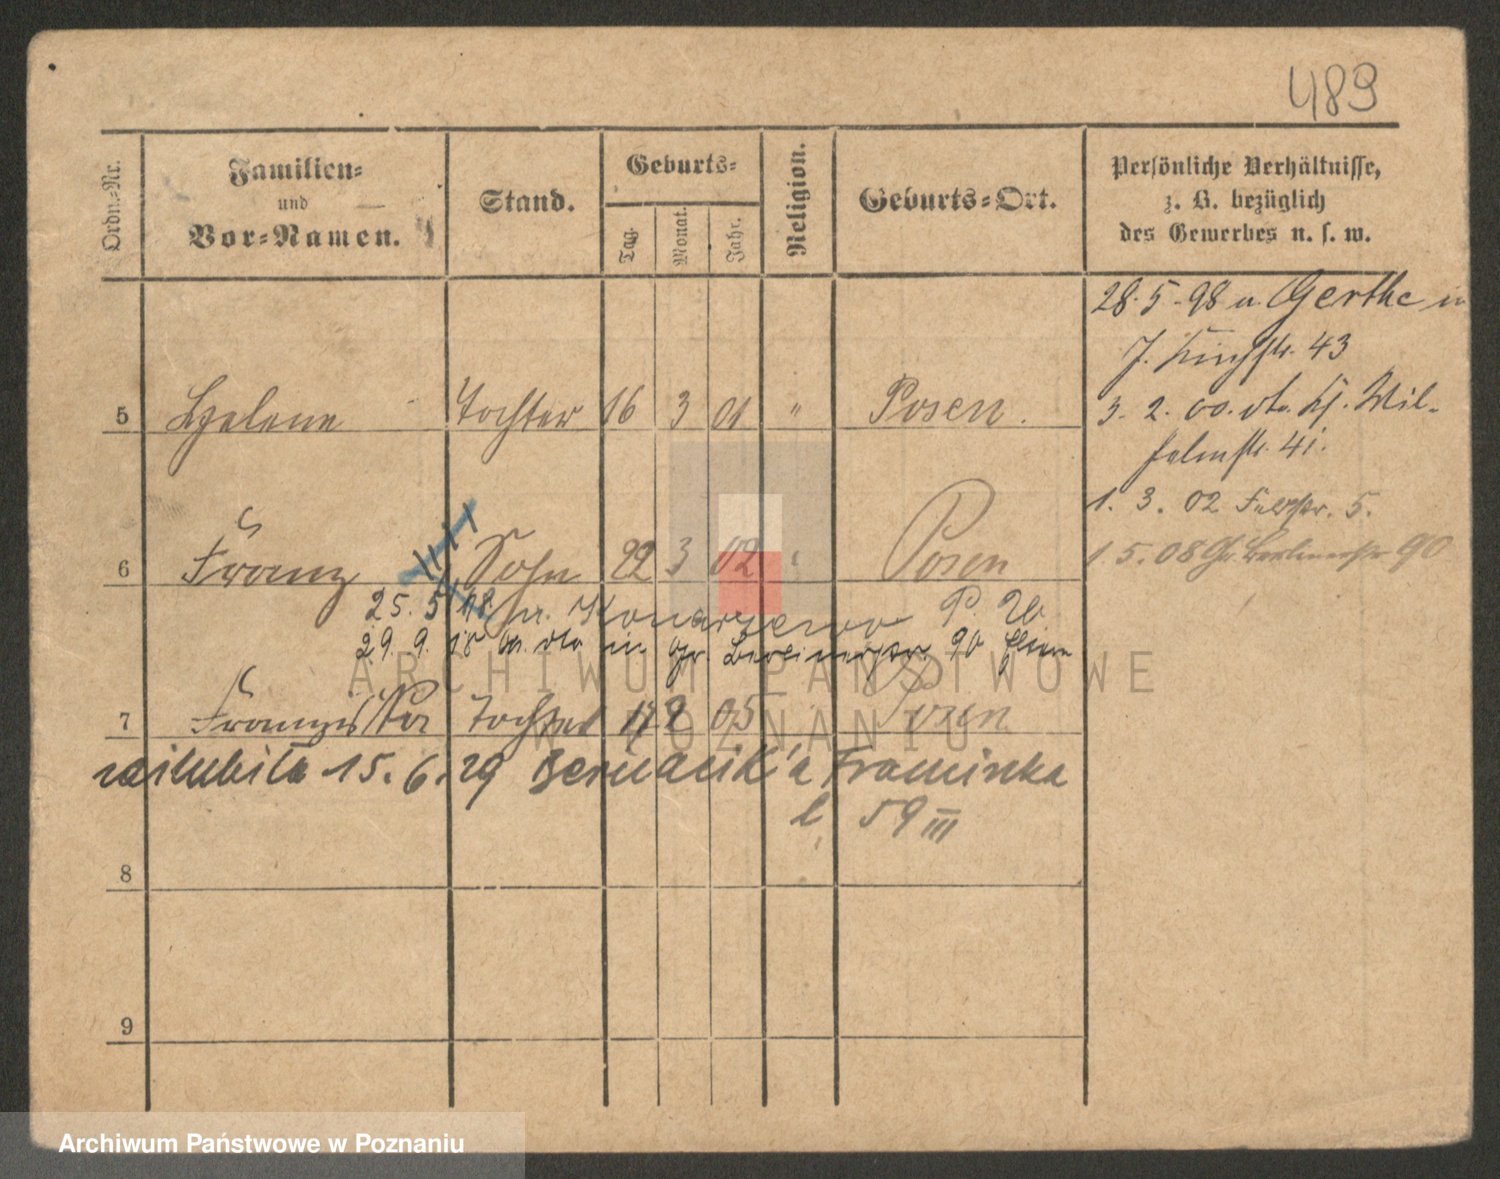 489
Ordn.-Nr.
Familien-
und
Vor-Namen.
Stand.
Geburts-
Tag.
Monat.
Jahr.
Religion.
Geburts-Ort.
Persönliche Verhältnisse,
z. B. bezüglich
des Gewerbes u. s. w.
28.5.98 n. Gerthe in
43
3. 2. 00. dto. Wil-
helmstr. 41.
5 Helene Tochter 16 3 01 " Posen.
1. 3. 02 5.
6 Franz Sohn 22 3 02 " Posen
1.5.08 Gr. Berlinerstr 90
25. 5. 18. n. Konarzewo P. W.
29. 9. 18 dto in Gr. Berlinerstr. 90
7 Franziska Tochter 2 05 Posen
15. 6. 29
l. 59 III
8
9
ARCHIWUM PAŃSTWOWE
W POZNANIU
Archiwum Państwowe w Poznaniu